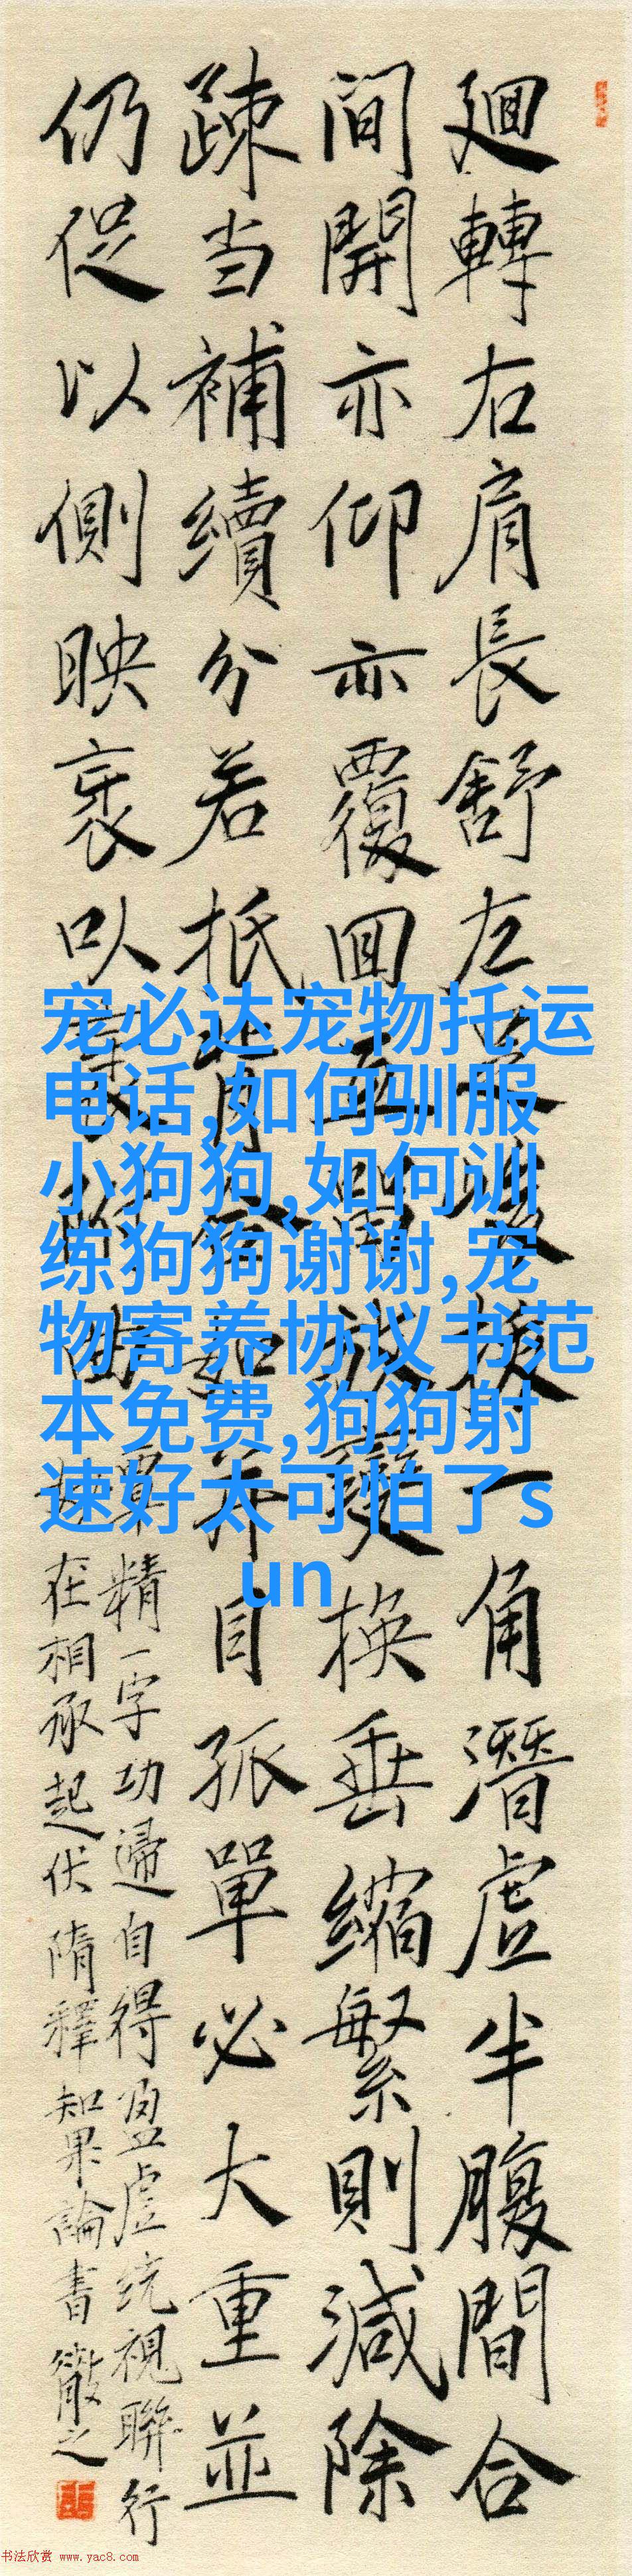 廻轉右肩長舒左
角潛虛半腹間合
間開亦仰亦覆回
換垂縮繁則減除
疎当補續分若抵
目孤單必大重並
仍促以側映裹以
精一字功歸自得盈虛統視聯行
在相承起伏隋釋智果論書徽之
宠必达宠物托运
电话,如何驯服
小狗狗,如何训
练狗狗谢谢,宠
物寄养协议书范
本免费,狗狗射
速好太可怕了s
un
书法欣赏 www.yac8.com